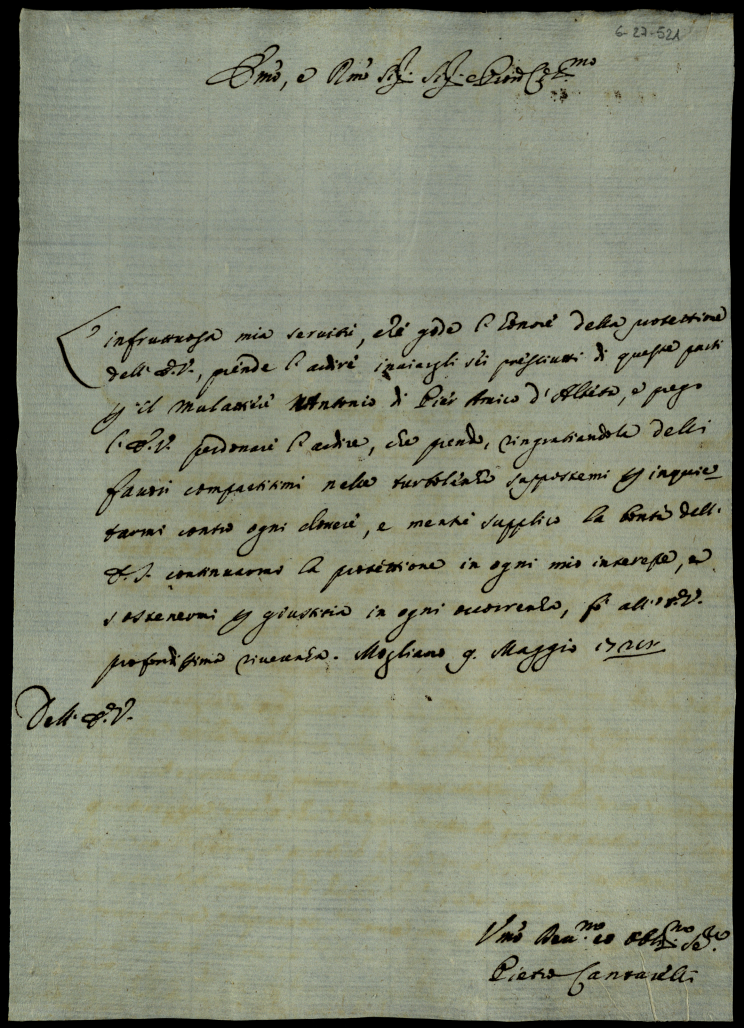 6-27-521
Emo, e Rmo Sig. Sig. e Pron
L'infruttuosa mia servitù, che gode l'honore della protettione
dell'E.V., prende l'ardire inviargli sei presciutti di queste parti
p il Mulattiere Antonio di Pier Amico d'Alteta, e prego
l'E.V. perdonare l'ardire, che prendo, ringratiandola delli
favori compartitimi nelle turbolenze suppostemi p inquie-
tarmi contro ogni dovere, e mentre supplico la bontà dell'
E.V. continuarmi la protettione in ogni mio interesse, e
sostenermi p giustitia in ogni occorrenza, fò all'E.V.
profondissima riverenza. Mogliano 9. Maggio
Dell'E.V.
Vmo Deu.mo ed Obl.mo Se.re
Pietro Cantarelli